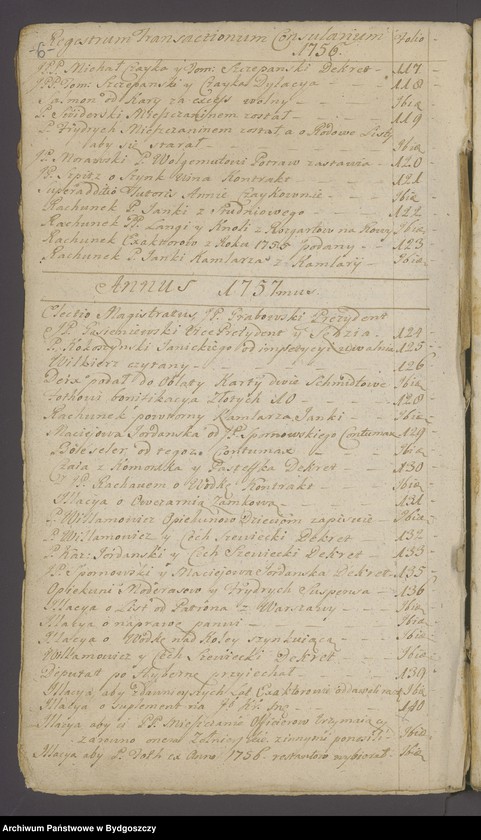 -6-
Regestrum Transactionum Consularium folio
1756.
JP. Michał Czayka y Tom: Szczepanski Dekret - 117
JPP Tom: Szczepanski y Czayka Dylacya - 118
od Kary za exces wolny - Ibid
P. Snyderski Mieszczaninem został - 119
P. Frydrych Mieszczaninem został a o Rodowe Listy
aby się starał - Ibid
P. Morawski P. Wolgemutowi zastawia - 120
PP. Spitz o Szynk Wina Kontrakt - 121
Superadditio Tutoris Annie Czaykownie - Ibid
Rachunek P. Janki z Grudniowego - 122
Rachunek PP. Langi y Knoli z Rozgartow na Nowy Ibid
Rachunek Czaktorow z Roku 1756 podany - 123
Rachunek P. Janki Kamlarza z Kamlaryi - Ibid
ANNUS 1757mus.
Electio Magistratus JP. Grabowski Prezydent
JP. Pasichiewski Vice Prezydent y Sędzia - 124
P. Rokoszynski Janickiego od impetycyi uwalnia - 125
Wilkierz czytany - 126
Deix podał do Oblaty Karty dwie Schmidtowe Ibid
bonifikacya Złotych 10 - 128
Rachunek powtorny Kamlarza Janki - Ibid
Maciejowa Jordanska od JP. Spornowskiego Contumax - 129
Boleseler od tegoż Contumax - Ibid
Zaia z Romonska y Pastetka Dekret - 130
JP. Rachauem o Wodkę Kontrakt - Ibid
Illacya o Owczarnią Zamkową - 131
P. Willamowicz Opiekunow Dzieciom zapisuie - Ibid
P. Willamowicz y Cech Szewiecki Dekret - 132
P. Kaz: Jordanski y Cech Szewiecki Dekret - 133
JP. Spornowski y Maciejowa Jordanska Dekret - 135
Opiekuni Moderasow y Frydrych Suspensa - 136
Illacya o List od Patrona z Warszawy - Ibid
Illacya o naprawę panwi - Ibid
Illacya o Wodkę nad Koley szynkuiącą - Ibid
Willamowicz y Cech Szewiecki Dekret - Ibid
Deputat po Hyberne przyiechał - 139
Illacya aby z dawnieyszych Lat Czaktorowie oddawali rach. Ibid
Illacya o suplement - 140
Illacya aby y PP. Mieszczanie Oficerow trzymaiący
zarowno onera z innymi ponosili - Ibid
Illacya aby P. Doth ex Anno 1756. restantow wybierał - Ibid
Archiwum Państwowe w Bydgoszczy